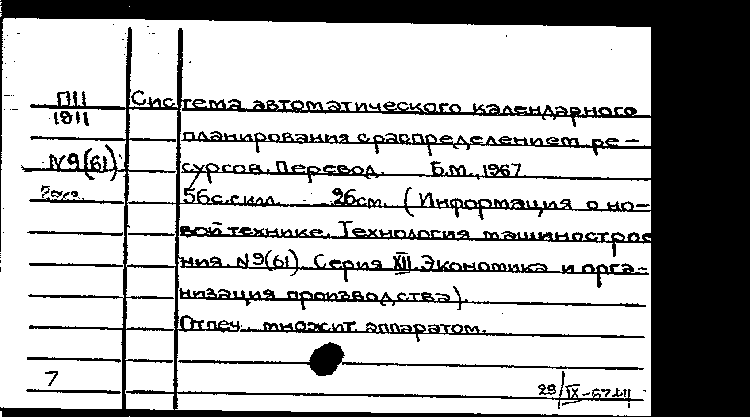 П11 Система автоматического календарного
1911
планирования с распределением ре-
N9(61) сурсов. Перевод. Б.М., 1967
56с.с илл. 26см. (Информация о но-
вой технике. Технология машинострое
ния. N9(61). Серия XII. Экономика и орга-
низация производства).
Отпеч. множит. аппаратом.
7